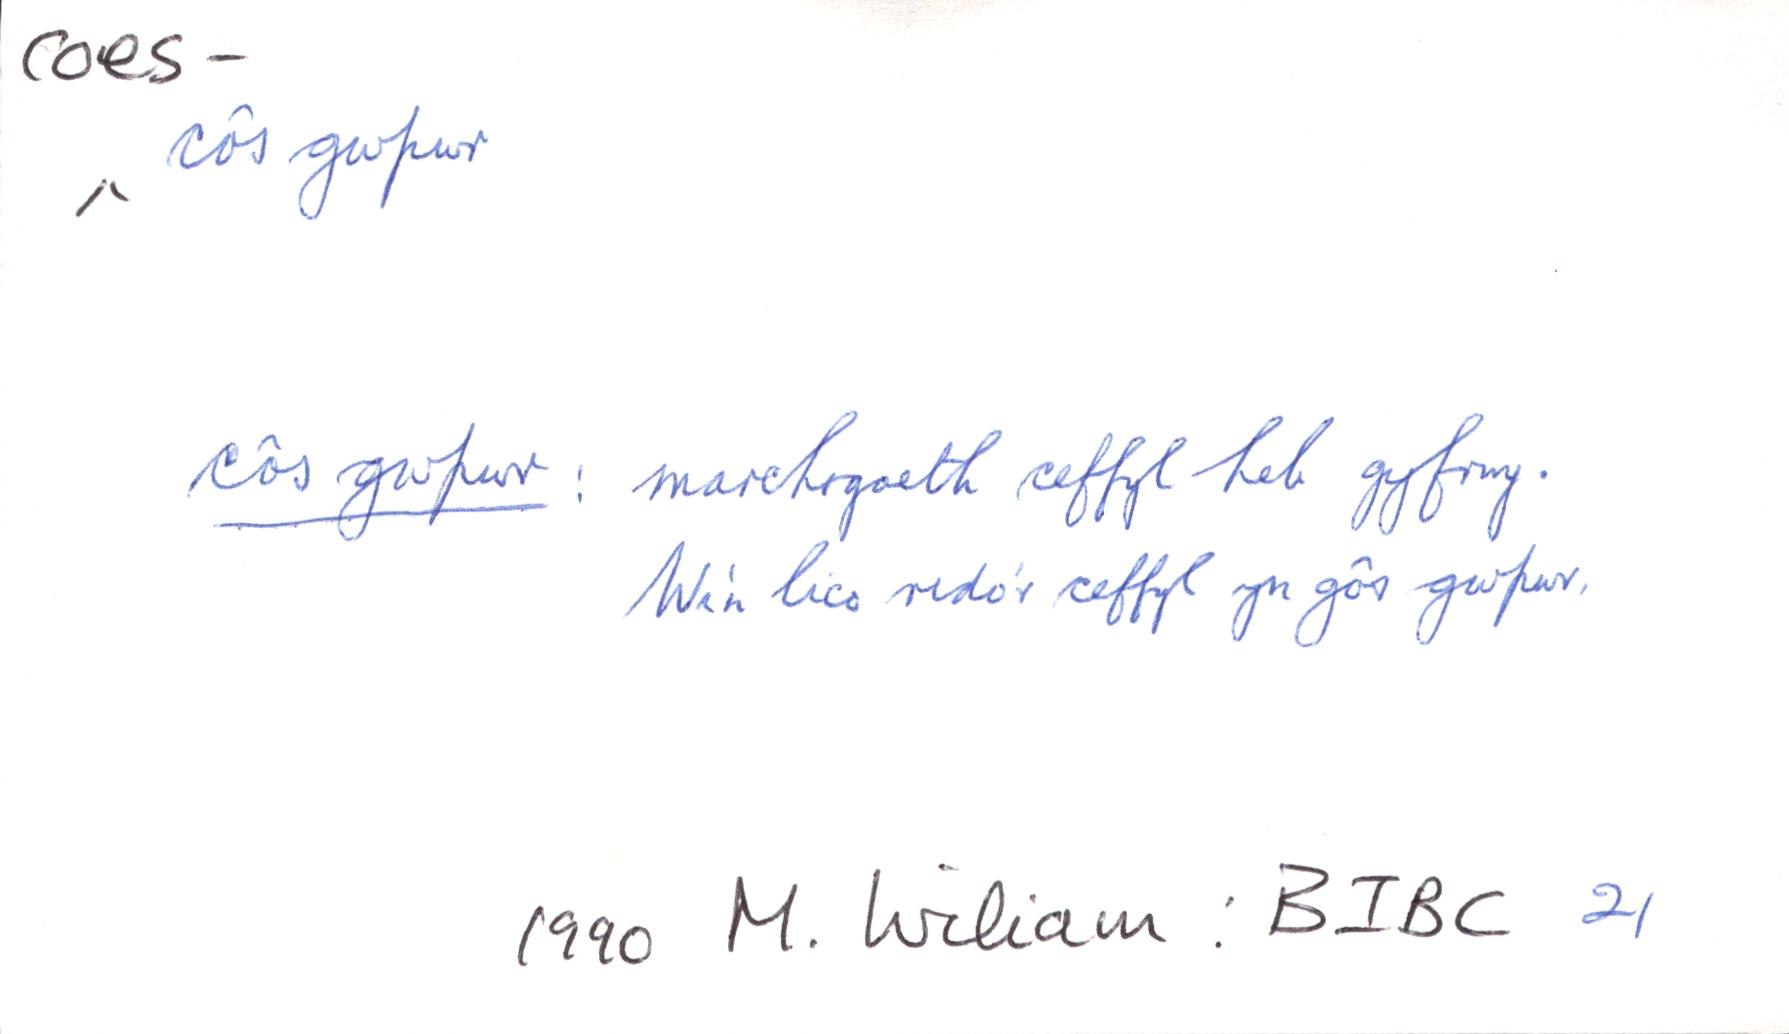 coes -
côs gwpwr
^
côs gwpwr : marchogaeth ceffyl heb gyfrwy.
Wi'n lico redo'r ceffyl yn gôs gwpwr.
1990 M. Wiliam : BIBC 21